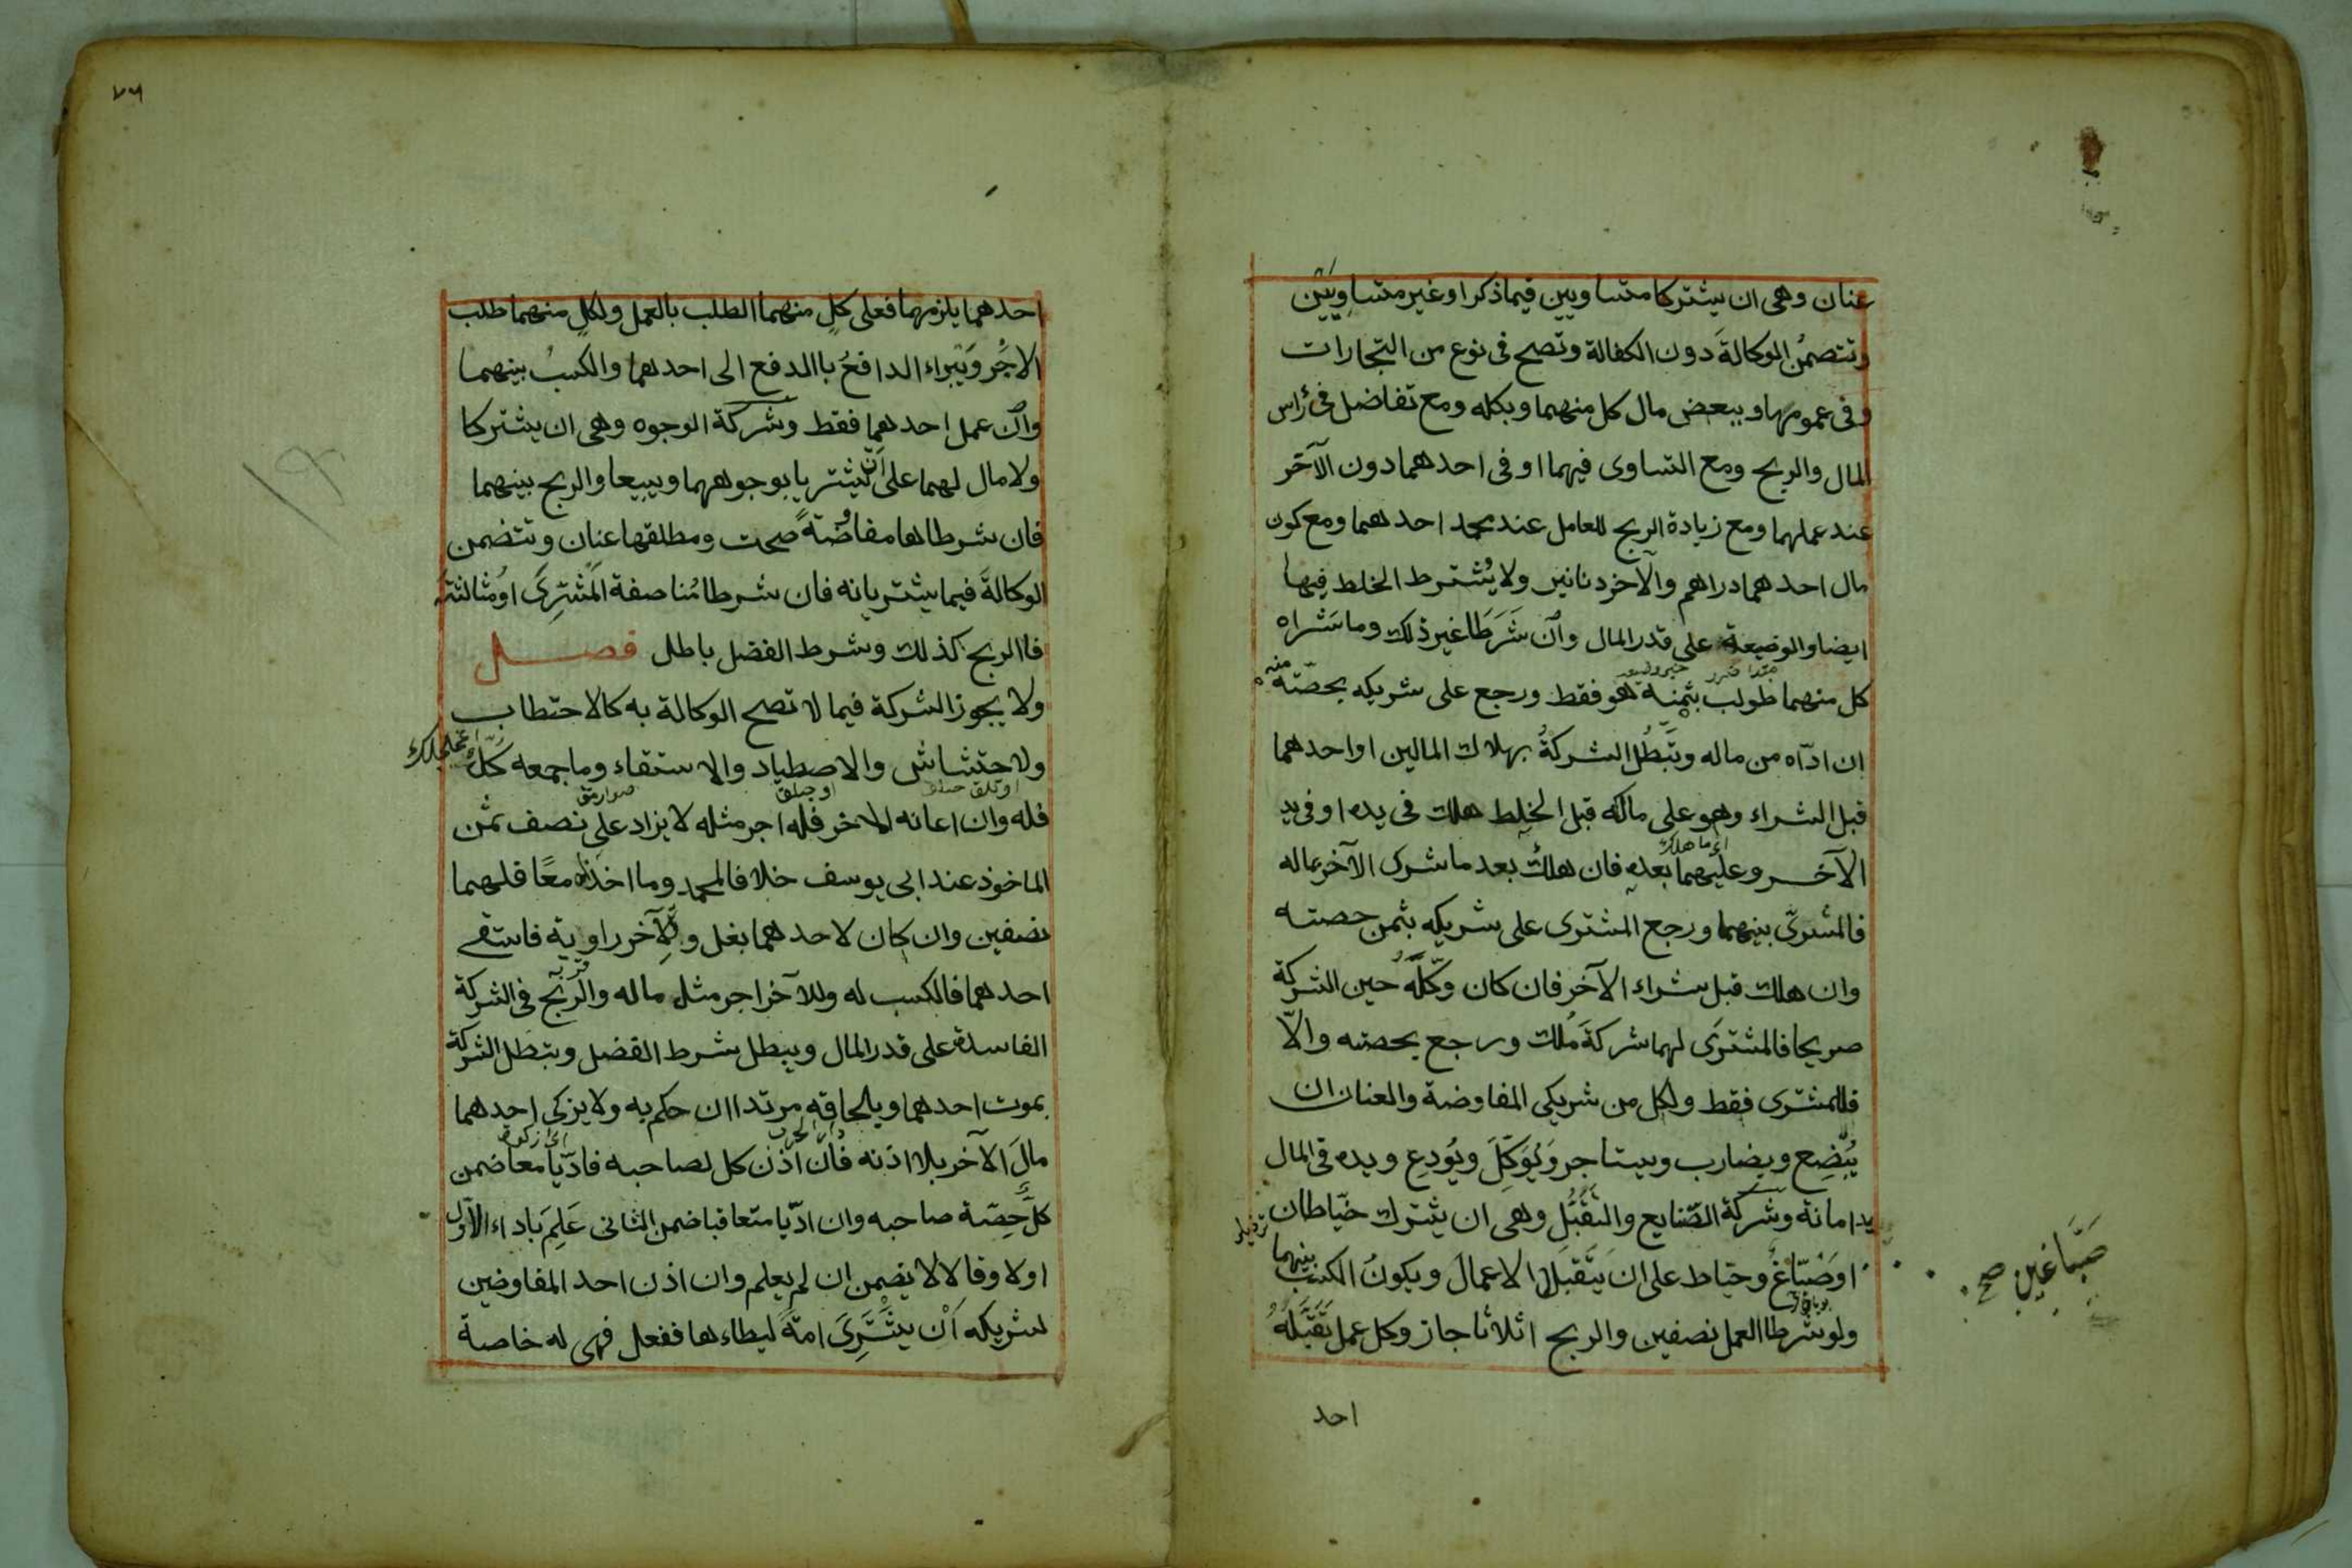 عنان وهى ان يشتركا متساويين فيما ذكرا او غير متساويين
وتتضمن الوكالة دون الكفالة وتصح فى نوع من التجارات
وفى عمومها وببعض مال كل منهما وبكله ومع تفاضل فى رأس
المال والربح ومع التساوى فيهما او فى احدهما دون الآخر
عند عملهما ومع زيادة الربح للعامل عند عمل احدهما ومع كون
مال احدهما دراهم والآخر دنانير ولا يشترط الخلط فيها
ايضا والوضيعة على قدر المال وان شرطا غير ذلك وما شراه
كل منهما طولب بثمنه هو فقط ورجع على شريكه بحصته منه
ان ادّاه من ماله وتبطل الشركة بهلاك المالين او احدهما
قبل الشراء وهو على مالكه قبل الخلط هلك فى يده او فى يد
اى ما هلك
الآخر وعليهما بعده فان هلك بعد ما شرى الآخر بماله
فالمشرى بينهما ورجع المشترى على شريكه بثمن حصته
وان هلك قبل شراء الآخر فان كان وكّله حين الشركة
صريحا فالمشترى لهما شركة ملك ورجع بحصته والّا
فللمشترى فقط ولكل من شريكى المفاوضة والعنان ان
يُبضِع ويضارب ويستاجر ويُوَكِّلَ ويُودِع ويده فى المال
يد امانة وشركة الصّنايع والتقبّل وهى ان يشترك خيّاطان
او صبّاغ وخياط على ان يتقبلا الاعمال ويكون الكسب بينهما
صبّاغين صح
ولو شرطا العمل نصفين والربح اثلاثا جاز وكل عمل تقبّله
احد
٧٦
احدهما يلزمهما فعلى كل منهما الطلب بالعمل ولكل منهما طلب
الاجر ويبراء الدافع باالدفع الى احدهما والكسب بينهما
وان عمل احدهما فقط وشركة الوجوه وهى ان يشتركا
ولا مال لهما على ان يشتريا بوجوههما ويبيعا والربح بينهما
فان شرطاها مفاوضة صحت ومطلقها عنان وتتضمن
الوكالة فيما يشتريانه فان شرطا مُناصفة المشترى او مثالثته
فاالربح كذلك وشرط الفضل باطل فصل
ولا يجوز الشركة فيما لا تصح الوكالة به كالاحتطاب
ولاحتشاش والاصطياد والاستقاء وما جمعه كلّ
فله وان اعانه الاخر فله اجر مثله لا يزاد على نصف ثمن
الماخوذ عند ابى يوسف خلافا لمحمد وما اخذاه معًا فلهما
نصفين وان كان لاحدهما بغل وللآخر راوية فاستقى
احدهما فالكسب له وللآخر اجر مثل ماله والربح فى الشركة
الفاسدة على قدر المال ويبطل شرط الفضل وتبطل الشركة
بموت احدهما وبلحاقه مرتدا ان حكم به ولا يزكى احدهما
دار الحرب
مال الآخر بلا اذنه فان اذن كل لصاحبه فادّيا معا ضمن
كلّ حِصّة صاحبه وان ادّيا متعاقبا ضمن الثانى عَلِمَ باداء الاول
اولا وقالا لا يضمن ان لم يعلم وان اذن احد المفاوضين
لشريكه اَنْ يشترى امة ليطاءها ففعل فهى له خاصة